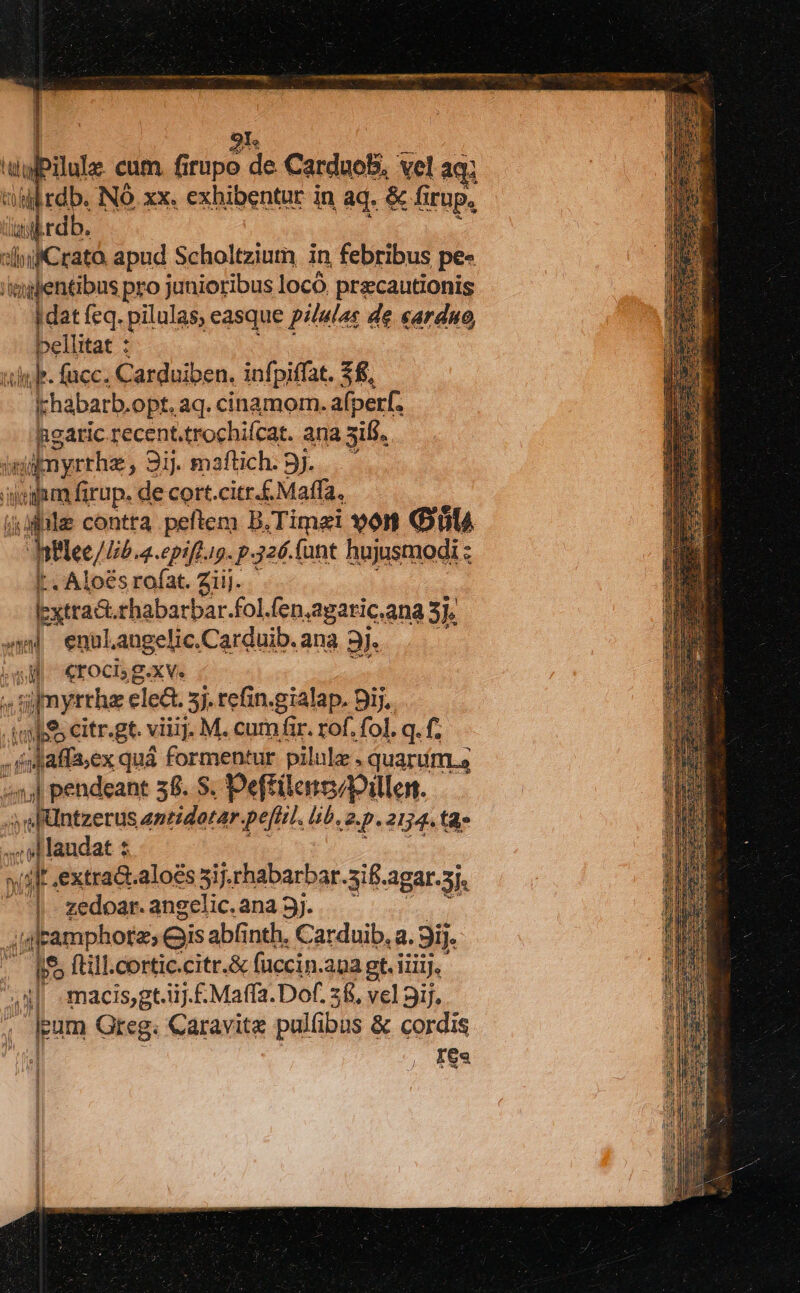 91.
Pilulæ cum ſirupo de Carduoß, vel aq;
rdb. Nô xx. exhibentur in aq. & ſirup.
rdb.
Crato apud Scholtzium in febribus pe-
entibus pro junioribus locô præcautionis
dat ſeq. pilulas, easque pilulas de carduo
bellitat :
. ſucc. Carduiben. inſpiſſat. ℥ß,
rhabarb.opt. aq. cinamom. aſperſ.
agaric.recent.trochiſcat. ana ʒiß.
myrrhæ, ℈ij. maſtich. ℈j.
ſirup. de cort.citr.f.Maſſa.
contra peſtem B.Timæi von Gül-
lib.4.epiſt.19. p.326.ſunt hujusmodi :
. Aloês roſat. ʒiij.
extract.rhabarbar.fol.ſen.agaric.ana ʒj.
enul.angelic.Carduib. ana ℈j.
croci, g.xv.
myrrhæ elect. ʒj. reſin.gialap. ℈ij.
citr.gt. viiij. M. cum ſir. roſ. ſol. q. ſ.
aſſa,ex quâ formentur pilulæ, quarum
pendeant ʒß. S. Peſtilentz/Pillen.
Untzerus antidotar.peſtil. lib.2.p.2134. ta-
laudat :
extract.aloës ʒij.rhabarbar.ʒiß.agar.ʒj.
zedoar.angelic.ana ℈j.
camphoræ, is abſinth. Carduib. a. ℈ij.
ſtill.cortic.citr.& ſuccin.ana gt.iiiij.
macis,gt.iij.f.Maſſa.Doſ. ʒß, vel ℈ij.
cum Greg. Caravitæ pulſibus & cordis
res